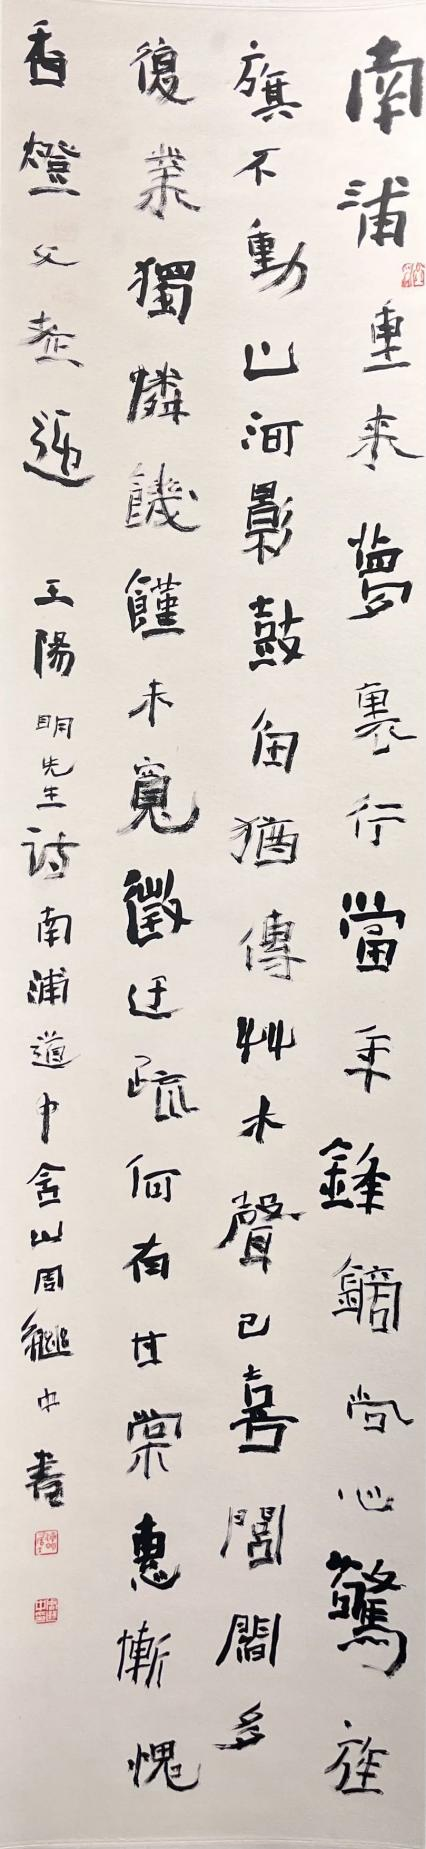 南浦重来夢裏行當年鋒鏑尚心驚旌
旗不動山河影鼓角猶傳艸木聲已喜閭閻多
復業獨憐饑饉未寬徵迂疏何有甘棠惠慚愧
香燈父老迎 王陽明先生詩南浦道中含山周繼中書